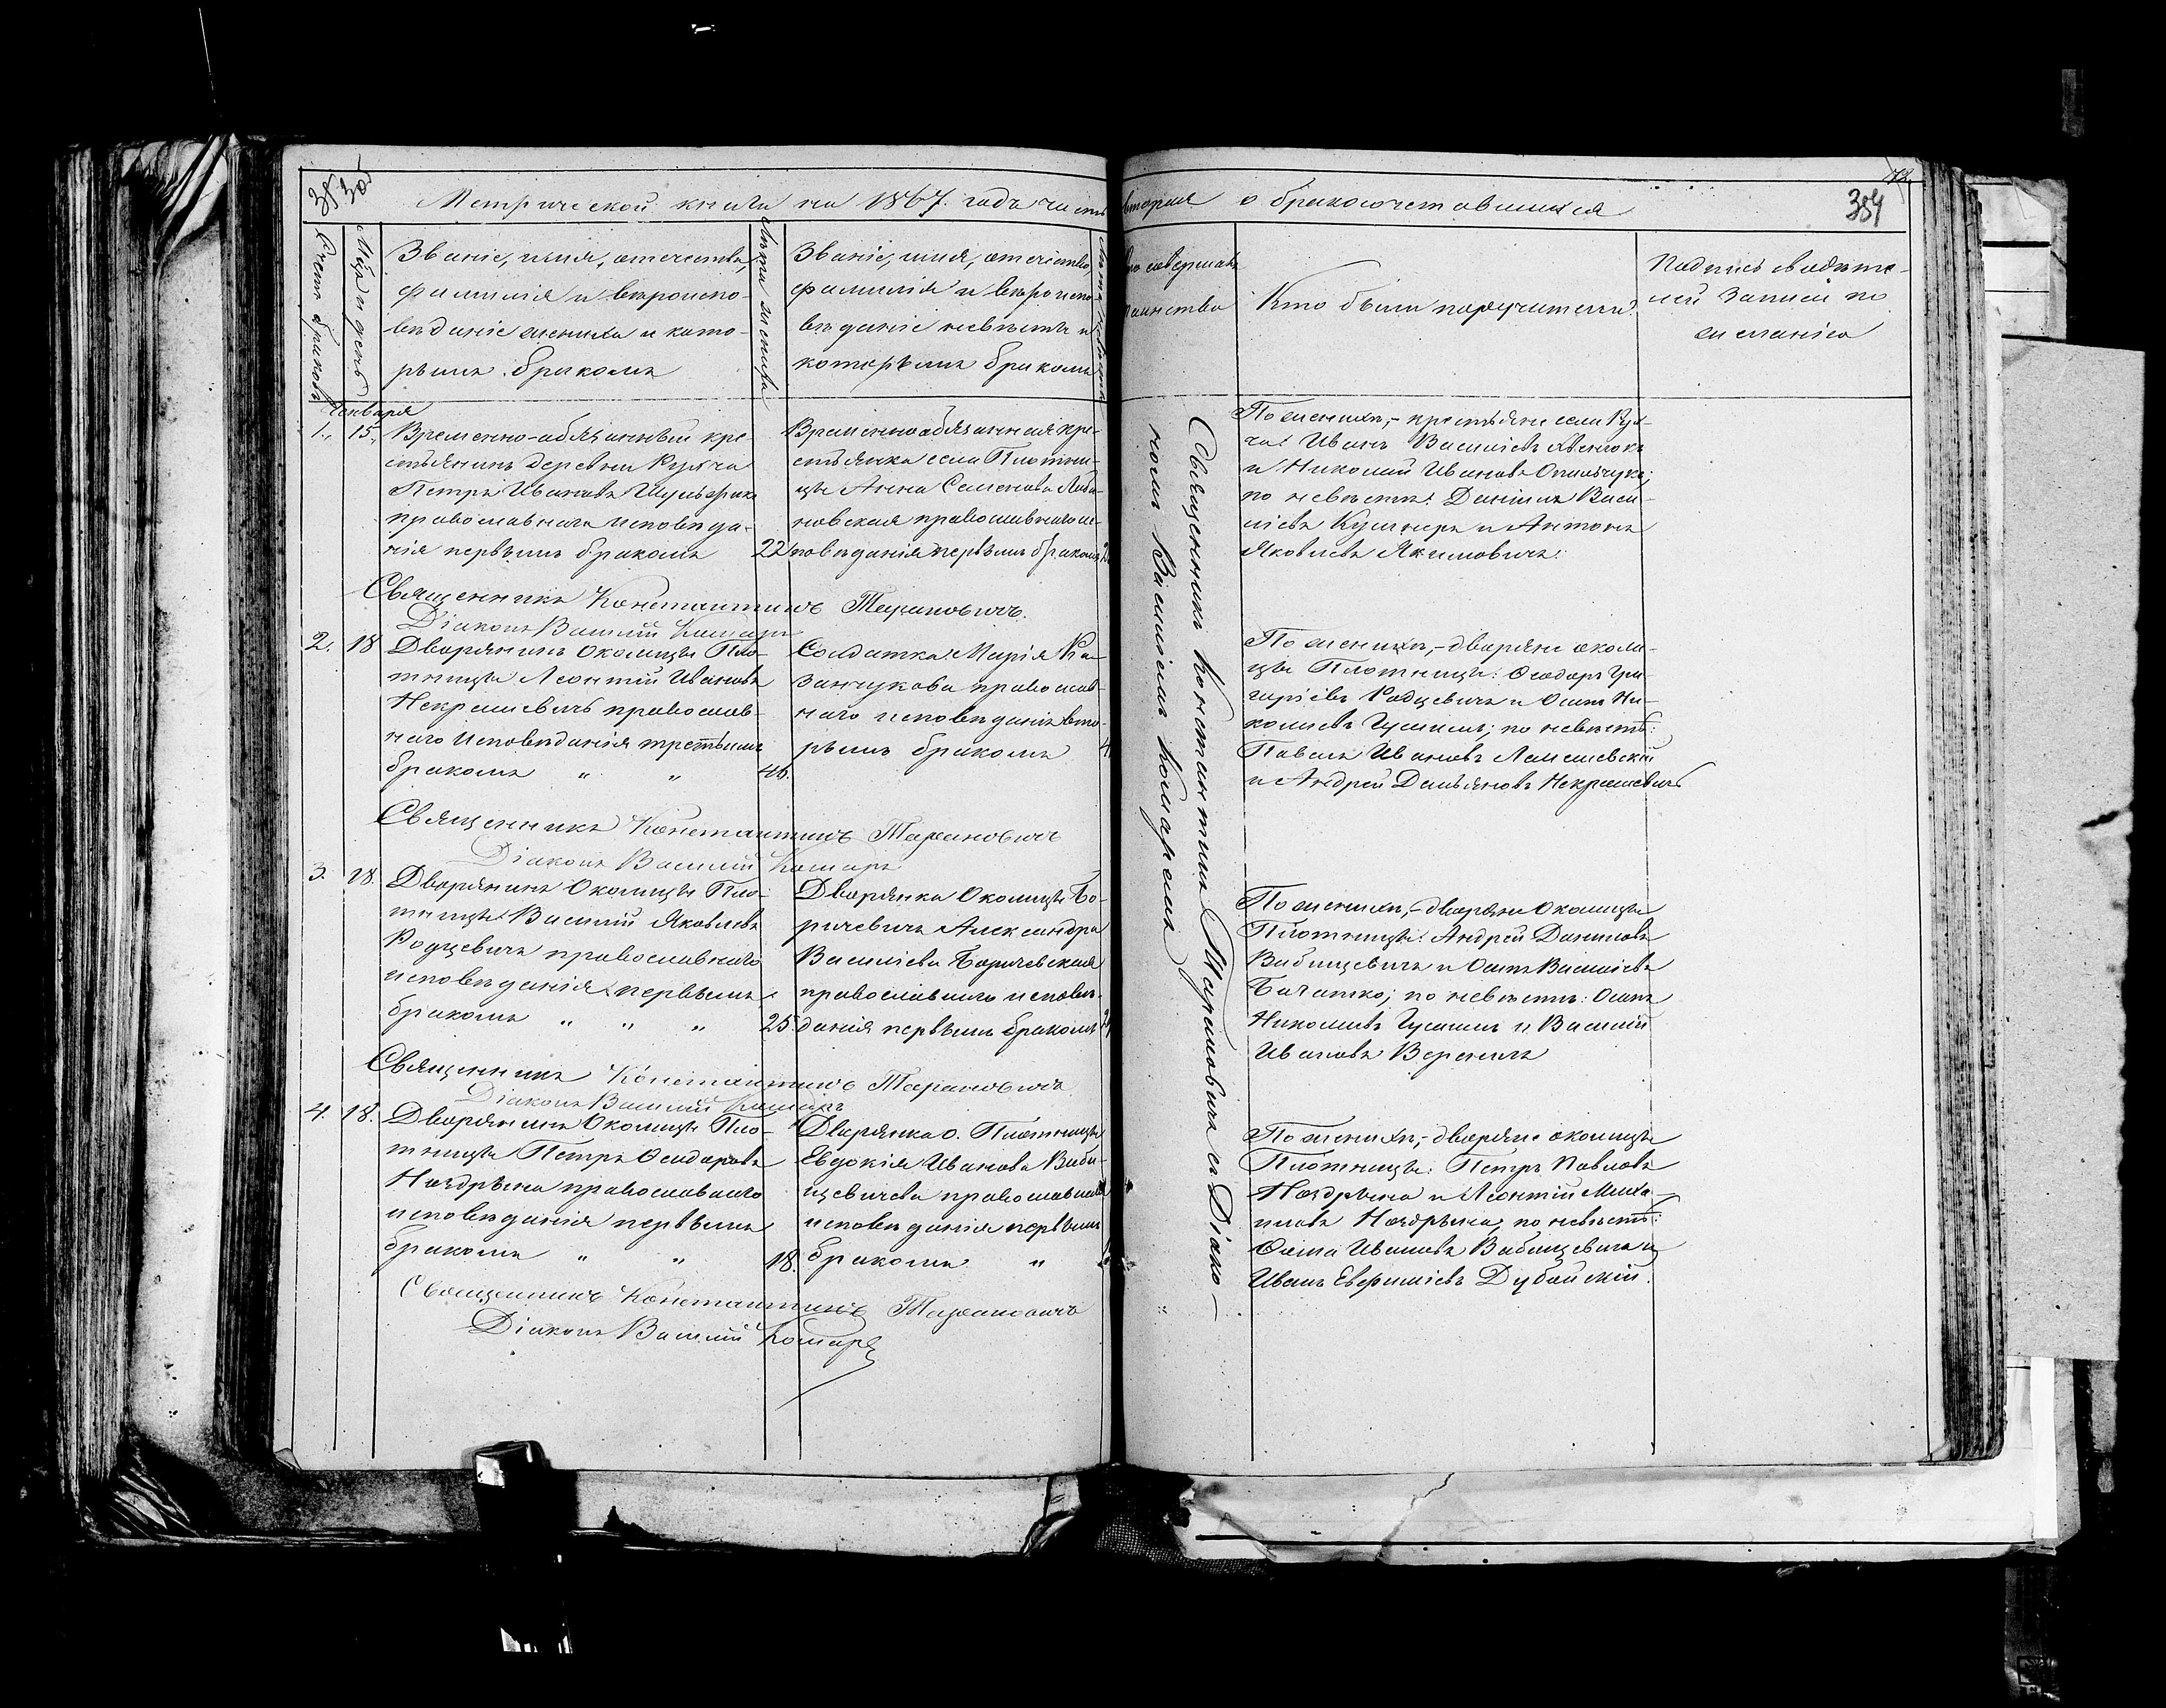 Метрической книги на 1867. годъ часть вторая о бракосочетавшихся
384
Счетъ браковъ
Мѣц. и день
Званіе, имя, отечество,
фамилія и вѣроиспо-
вѣданіе жениха и кото-
рымъ бракомъ
Лѣта жениха
Званіе, имя, отечество,
фамилія и вѣроиспо-
вѣданіе невѣсты и
которымъ бракомъ
Лѣта невѣсты
Кто совершалъ
таинство
Кто были поручители
Подпись свидѣте-
лей записи по
желанію
Января
1. 15. Временно-обязанный кре-
стьянинъ деревни Кутча
Петръ Ивановъ
православнаго исповѣда-
нія первымъ бракомъ 22
Временнообязанная кре-
стьянка села Плотни-
цы Анна Семенова
новская православнаго ис-
повѣданія первымъ бракомъ
По женихѣ,- крестьяне села
Иванъ Василіевъ
и Николай Ивановъ
по невѣстѣ: Даніилъ Васи-
ліевъ Кушнеръ и Антонъ
Яковлевъ Якимовичъ.
Священникъ Константинъ Тарановичъ.
Діаконъ Василій Комаръ
2. 18 Дворянинъ Околицы Пло-
тницы Леонтій Ивановъ
Некрашевичъ православ-
наго исповѣданія третьимъ
бракомъ " " 46.
Солдатка Марія Ка-
занчукова православ-
наго исповѣданія вто-
рымъ бракомъ 4
По женихѣ,- дворяне околи-
цы Плотницы: Ѳеодоръ Гри-
горіевъ Родцевичъ и Осипъ Ни-
колаевъ Гусинъ; по невѣстѣ:
Павелъ Ивановъ
и Андрей Демьяновъ Некрашевичъ
Священникъ Константинъ Тарановичъ
Діаконъ Василій Комаръ
3. 18. Дворянинъ Околицы Пло-
тницы Василій Яковлевъ
Родцевичъ православнаго
исповѣданія первымъ
бракомъ " " " 25
Дворянка Околицы Бо-
ричевичъ Александра
Василіева Боричевская
православнаго исповѣ-
данія первымъ бракомъ
По женихѣ,- дворяне Околицы
Плотницы: Андрей Даниловъ
Вабищевичъ и Осипъ Василіевъ
Бачатко; по невѣстѣ: Осипъ
Николаевъ Гусинъ и Василій
Ивановъ Вереничъ
Священникъ Константинъ Тарановичъ
Діаконъ Василій Комаръ
4. 18. Дворянинъ Околицы Пло-
тницы Петръ Ѳеодоровъ
Ноздрынъ православнаго
исповѣданія первымъ
бракомъ " " 18.
Дворянка о. Плотницы
Евдокія Иванова Ваби-
щевичева православнаго
исповѣданія первымъ
бракомъ "
По женихѣ,- дворяне околицы
Плотницы: Петръ Павловъ
Ноздрынъ и Леонтій Миха-
иловъ Ноздрынъ; по невѣстѣ:
Ѳома Ивановъ Вабищевичъ и
Иванъ Евфиміевъ Дубойскій.
Священникъ Константинъ Тарановичъ
Діаконъ Василій Комаръ
Священникъ Константинъ Тарановичъ съ Діако-
номъ Василіемъ Комаремъ